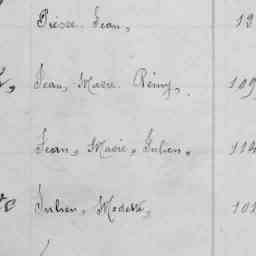 Pierre Jean, 12
Jean, Marie Rémy, 109
Jean, Marie, Julien, 114
Julien, Modeste, 101